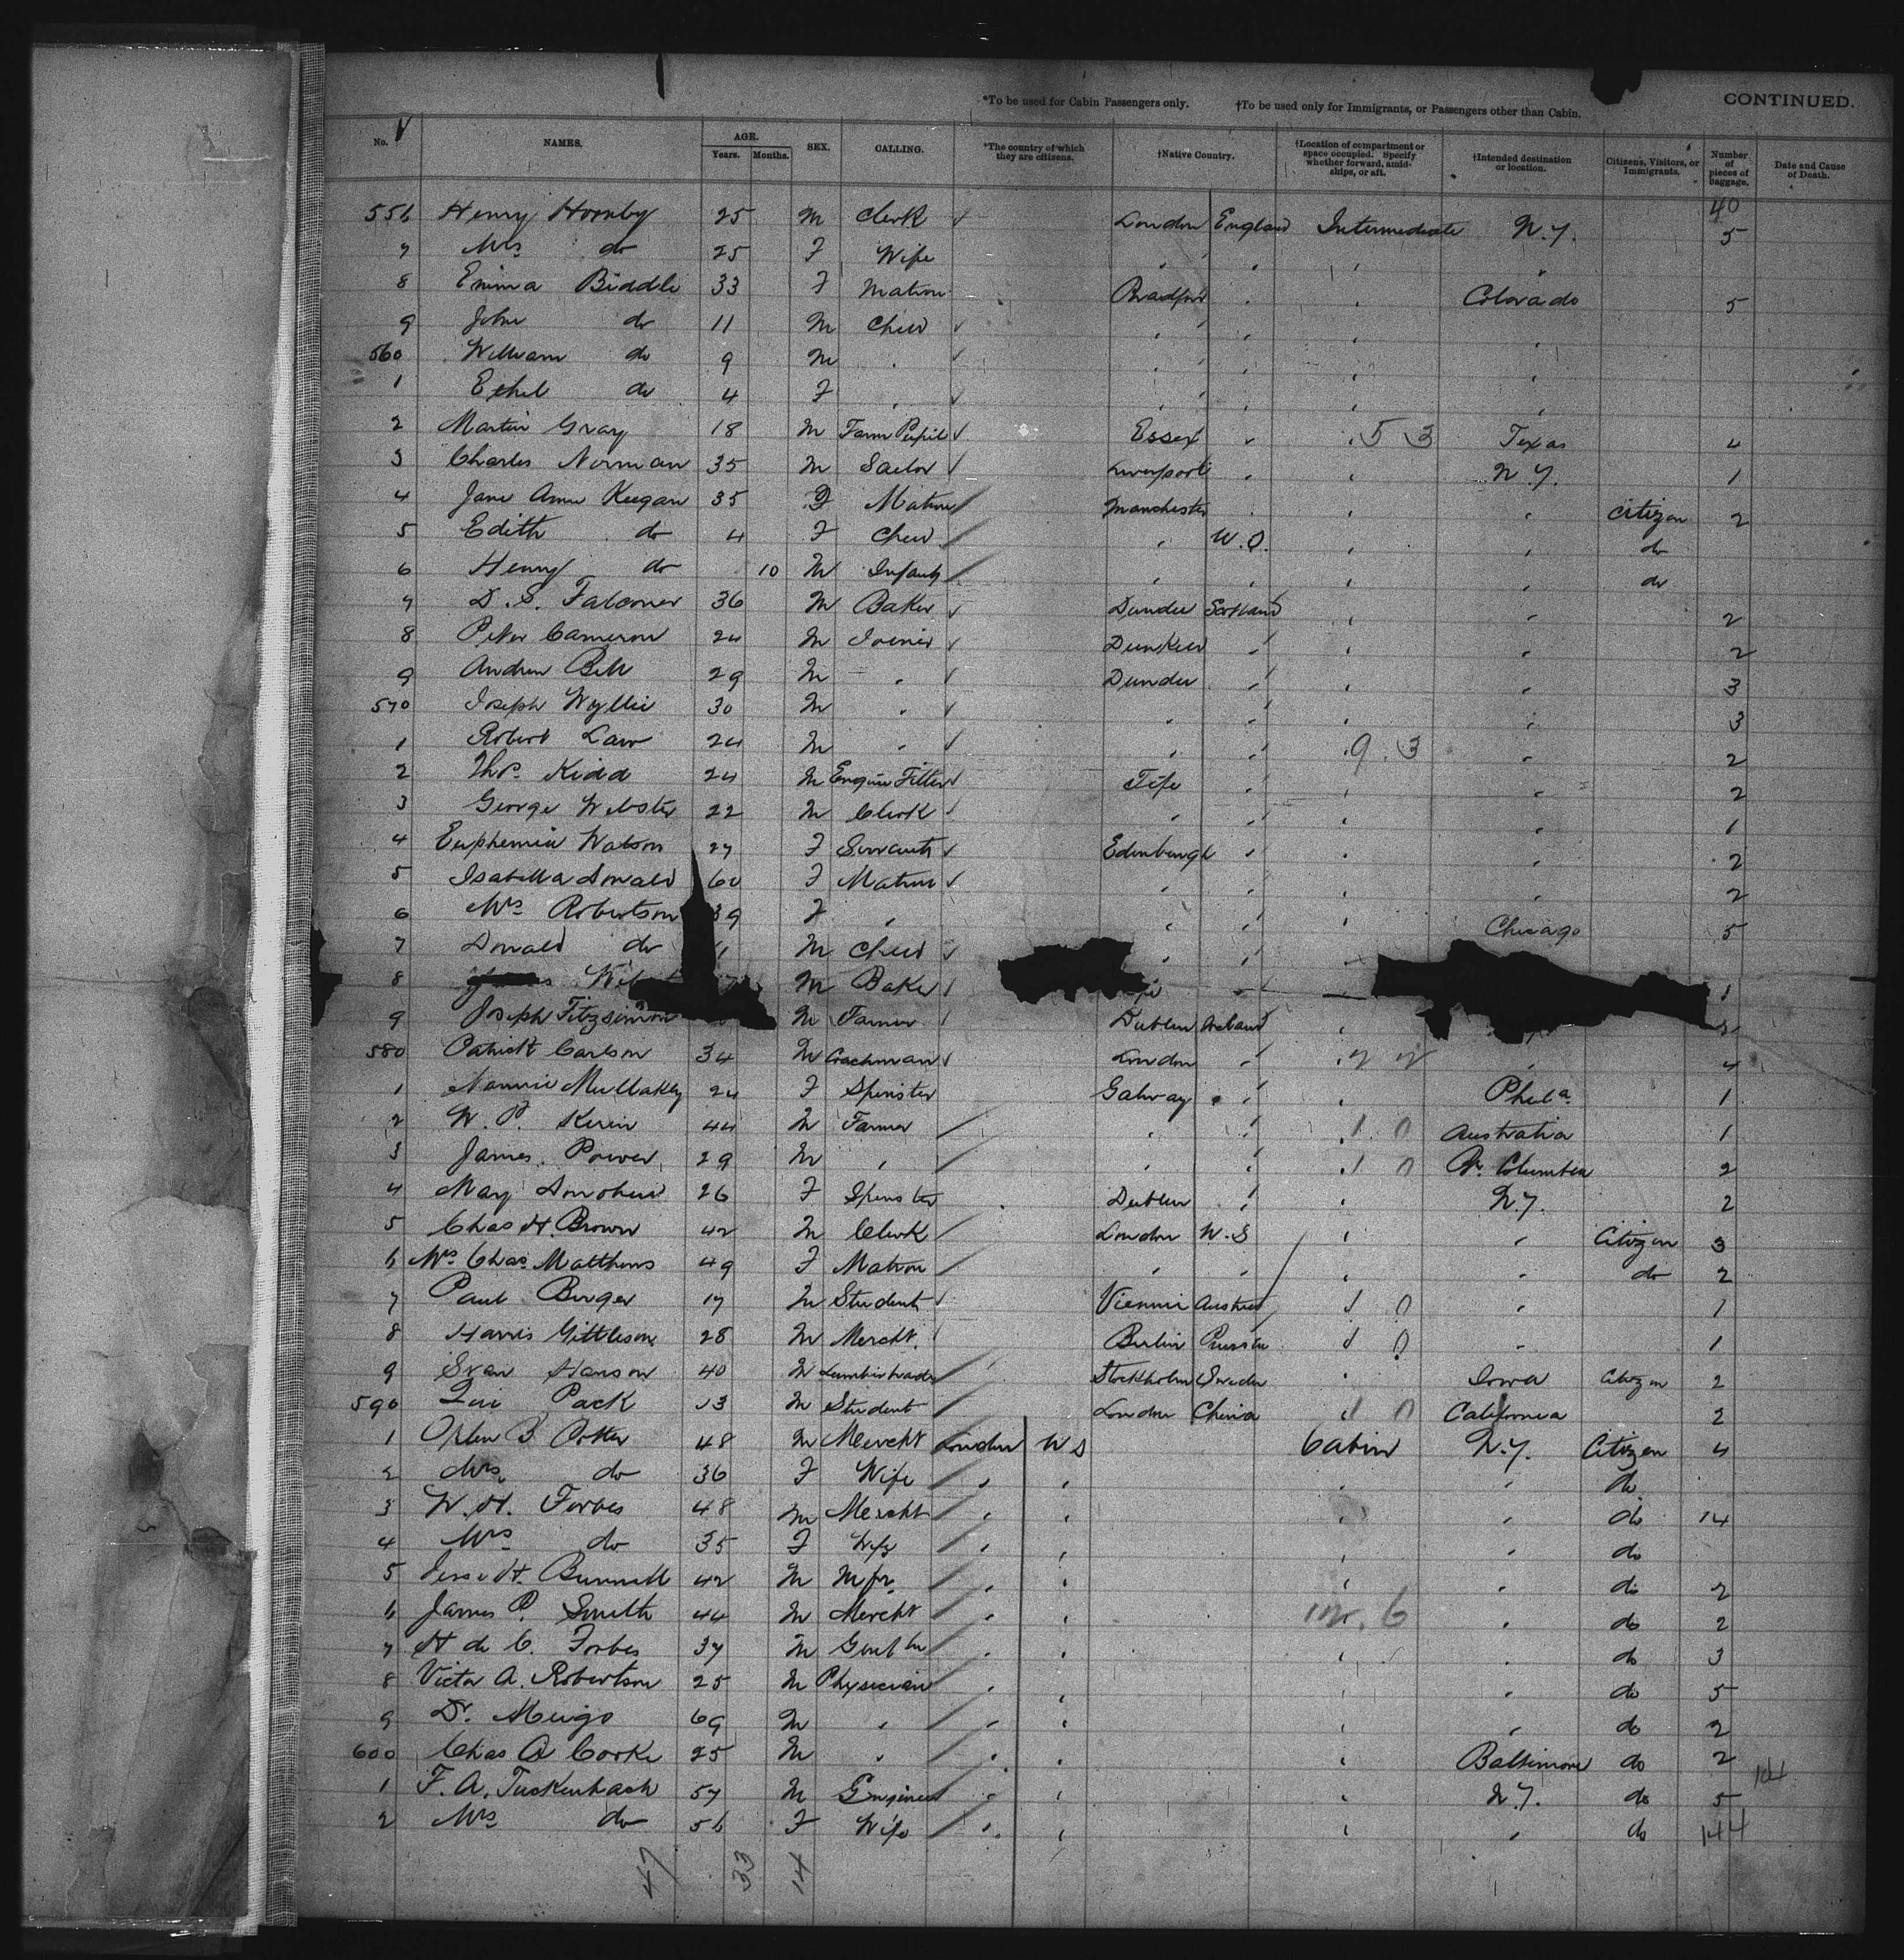 *To be used for Cabin Passengers only. †To be used only for Immigrants, or Passengers other than Cabin. CONTINUED.
No. NAMES. AGE. Years. Months. SEX. CALLING. *The country of which they are citizens. †Native Country. †Location of compartment or space occupied. Specify whether forward, amidships, or aft. †Intended destination or location. Citizens, Visitors, or Immigrants. Number of pieces of Baggage. Date and Cause of Death.
40
556 Henry Hornby 25 M Clerk London England Intermediate N.Y. 5
7 Mrs do 25 F Wife
8 Emma Biddle 33 F Matron Bradford Colorado 5
9 John do 11 M Child
560 William do 9 M
1 Ethel do 4 F
2 Martin Gray 18 M Farm Pupil Essex 5 3 Texas 4
3 Charles Norman 35 M Sailor Liverpool N.Y. 1
4 Jane Anne Keegan 35 F Matron Manchester Citizen 2
5 Edith do 4 F Child do
6 Henry do 10 M Infant do
7 D. S. Falconer 36 M Baker Dundee Scotland 2
8 Peter Cameron 24 M Joiner 2
9 Andrew Bell 29 M Dundee 3
570 Joseph Wyllie 30 M 3
1 Robert Law 24 M 9 3 2
2 Thos. Kidd 24 M Engine Fitter Fife 2
3 George Webster 22 M Clerk 1
4 Euphemia Watson 27 F Servant Edinburgh 2
5 Isabella Donald 60 F Matron 2
6 Mrs Robertson 39 F Chicago 5
7 Donald do M Child
8 M Baker 1
9 Joseph Fitzsimon M Farmer Dublin Ireland
580 Patrick Carlson 34 M Coachman London 4
1 Nannie Mullakey 24 F Spinster Galway Phila. 1
2 W. P. Kerin 44 M Farmer 1 0 Australia 1
3 James Power 29 M 1 0 Br. Columbia 2
4 May Donohue 26 F Spinster Dublin N.Y. 2
5 Chas H. Brown 42 M Clerk London U.S Citizen 3
6 Mrs Chas Matthews 49 F Matron do 2
7 Paul Berger 17 M Student Vienna Austria 1 0 1
8 Harris Gittleson 28 M Mercht. Berlin Prussia 1 0 1
9 Svan Hanson 40 M Stockholm Sweden Iowa Citizen 2
590 Pack 13 M Student London China 1 0 California 2
1 48 M Mercht London U S Cabin N.Y. Citizen 4
2 Mrs do 36 F Wife do
3 W. H. Forbes 48 M Mercht do 14
4 Mrs do 35 F Wife do
5 Jesse H. Bunnell 42 M Mfr. do 2
6 James P. Smith 44 M Mercht 12. 6 do 2
7 H de C. Forbes 37 M do 3
8 Victor A. Robertson 25 M Physician do 5
9 Dr. Meigs 69 M do 2
600 Chas A Corke 25 M Baltimore do 2
1 F. A. Tuckenbach 57 M Engineer N.Y. do 5
2 Mrs do 56 F Wife do 144
47 33 14